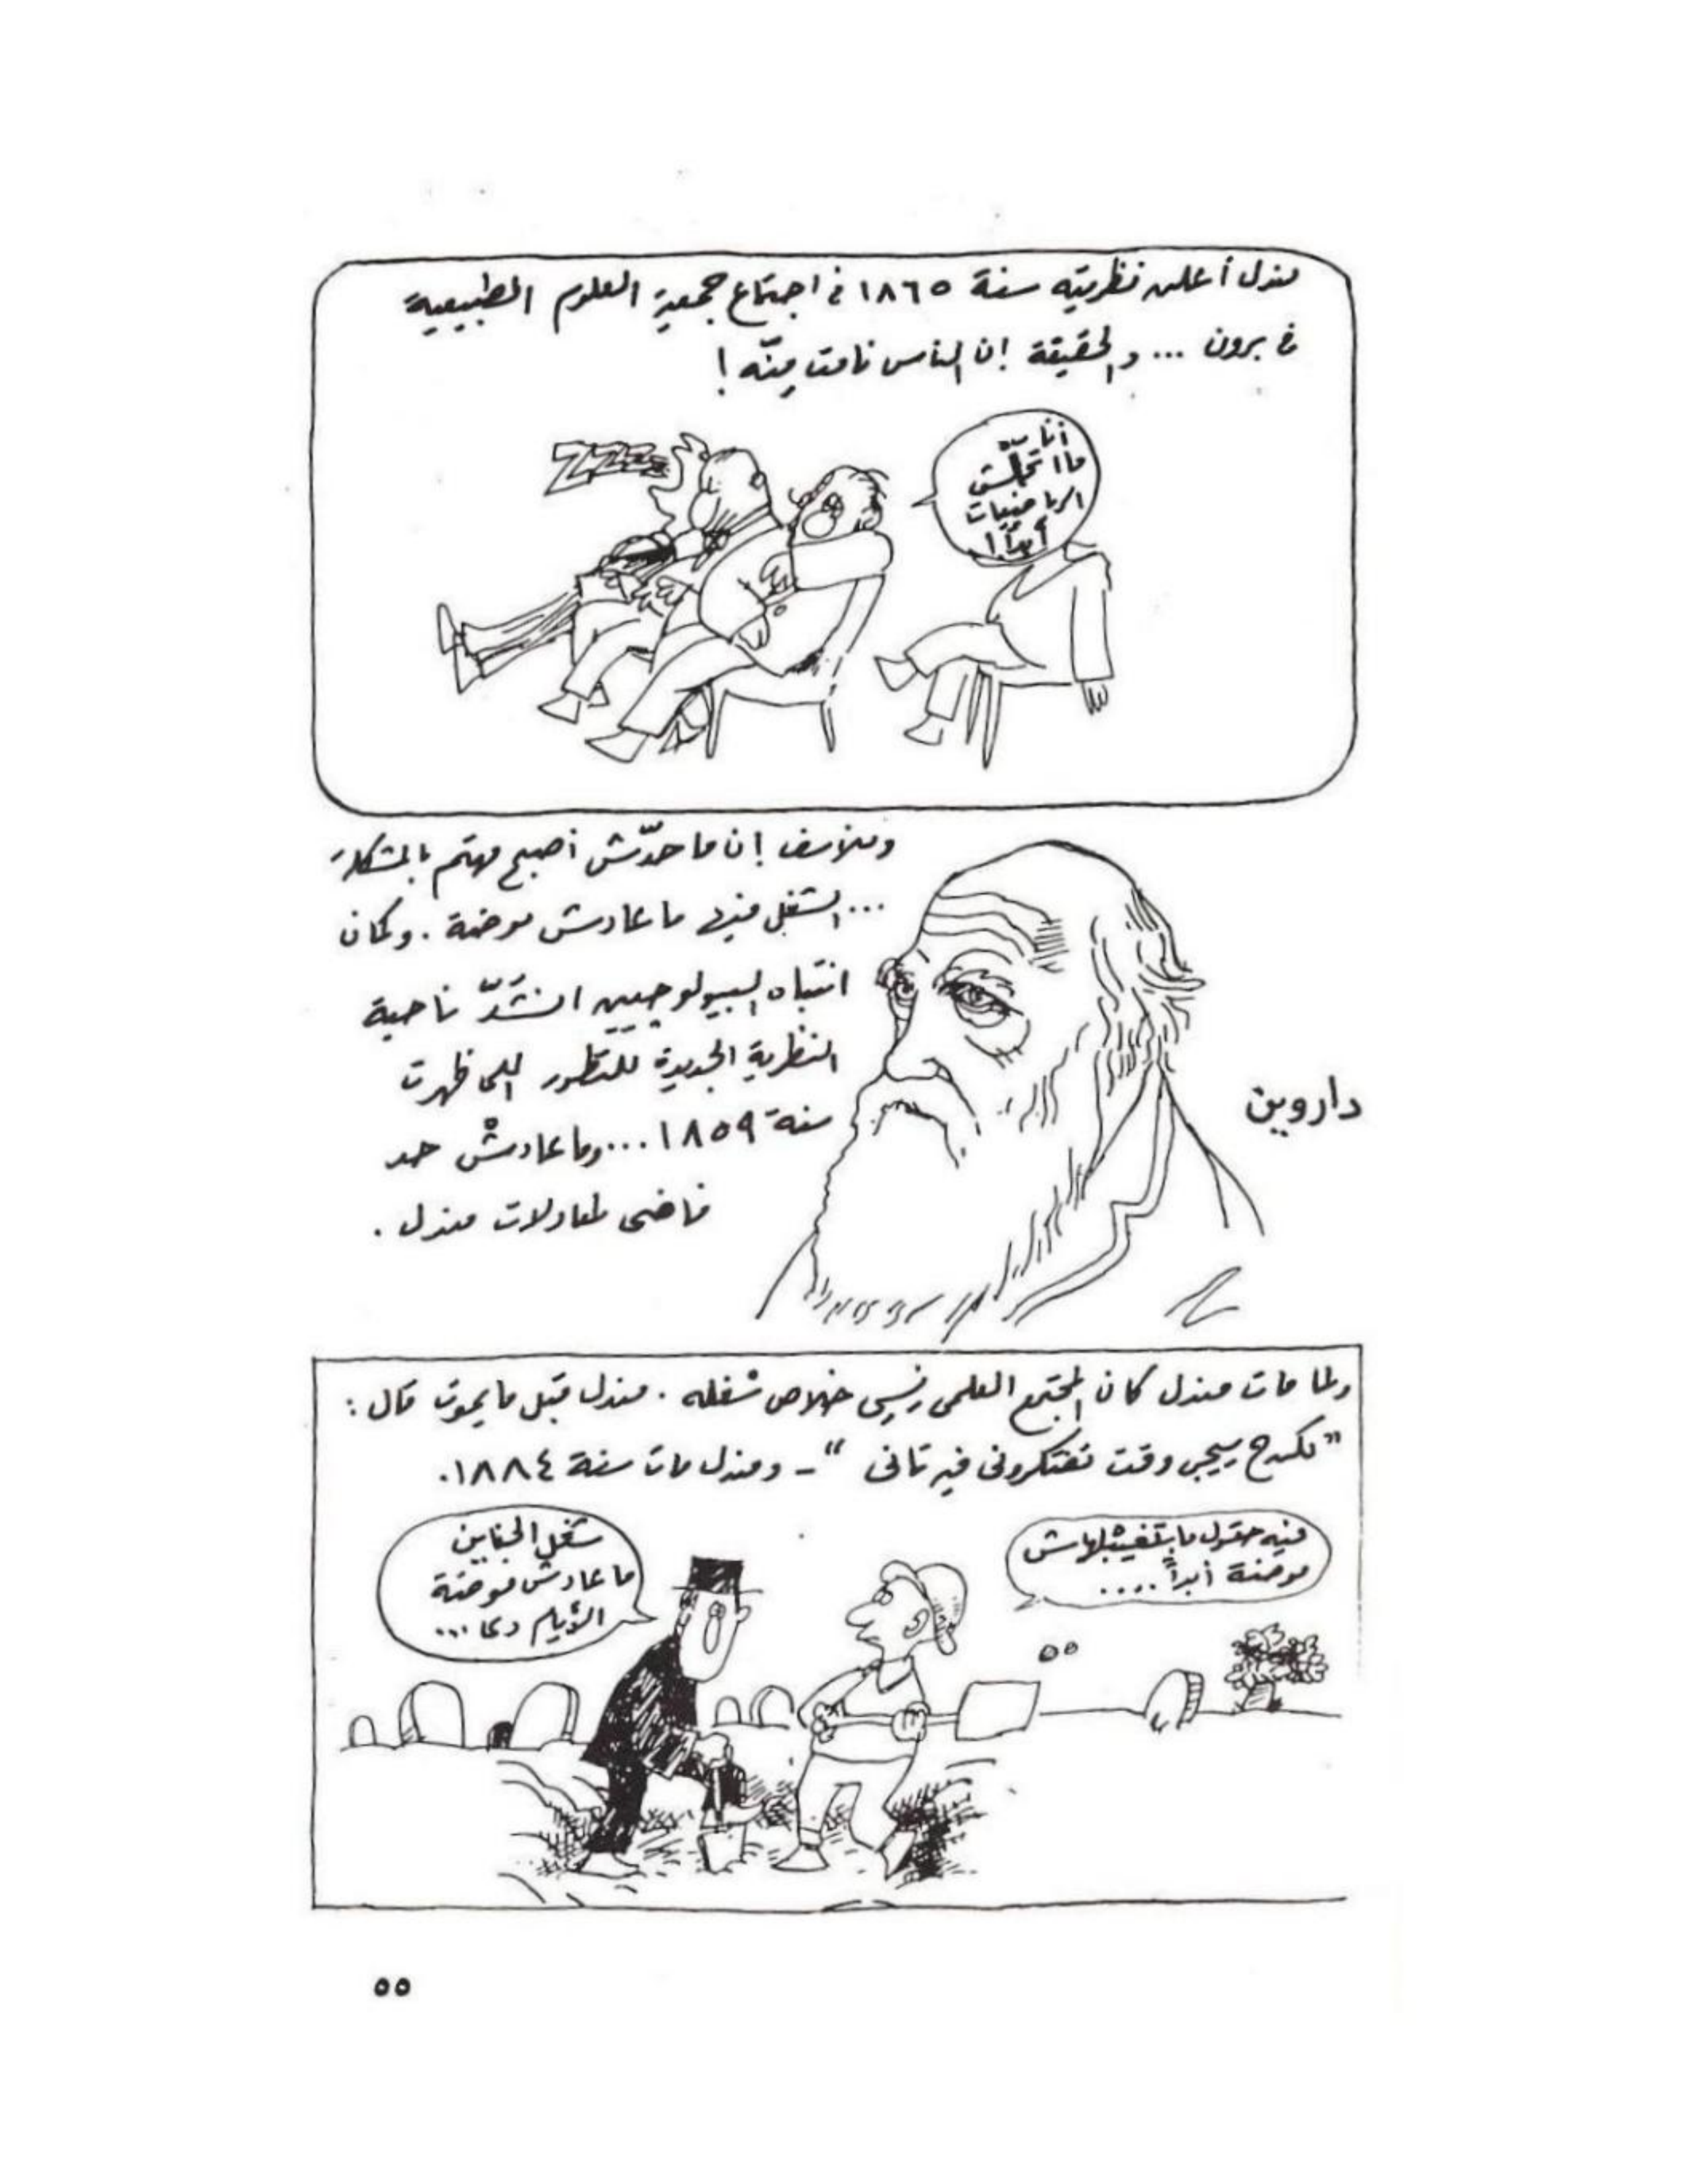 مندل أعلن نظريته سنة ١٨٦٥ في اجتماع جمعية العلوم الطبيعية
في برون ... والحقيقة إن الناس نامت مِنّه !
أنا
ما اتحمّلتش
الرياضيات
أبداً !
ZZZzz
وللأسف إن ما حدّش أصبح مهتم بالمشكلة
... الشغل فيها ما عادش موضة . وكان
انتباه البيولوجيين انشَدّ ناحية
النظرية الجديدة للتطور اللي ظهرت
سنة ١٨٥٩ ... وما عادشْ حد
فاضي لمعادلات مندل .
داروين
ولما مات مندل كان المجتمع العلمى نِسِي خلاص شغله . مندل قبل ما يموت قال :
" لكن ح ييجي وقت تفتكرونى فيه تانى " - ومندل مات سنة ١٨٨٤.
فيه حقول ما بتفضلهاش
موضة أبداً ....
شغل الجناين
ما عادش موضة
الأيام دى ...
٥٥